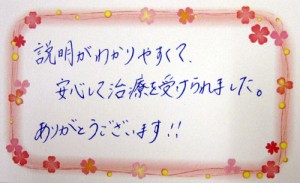 説明がわかりやすくて、
安心して治療を受けられました。
ありがとうございます!!